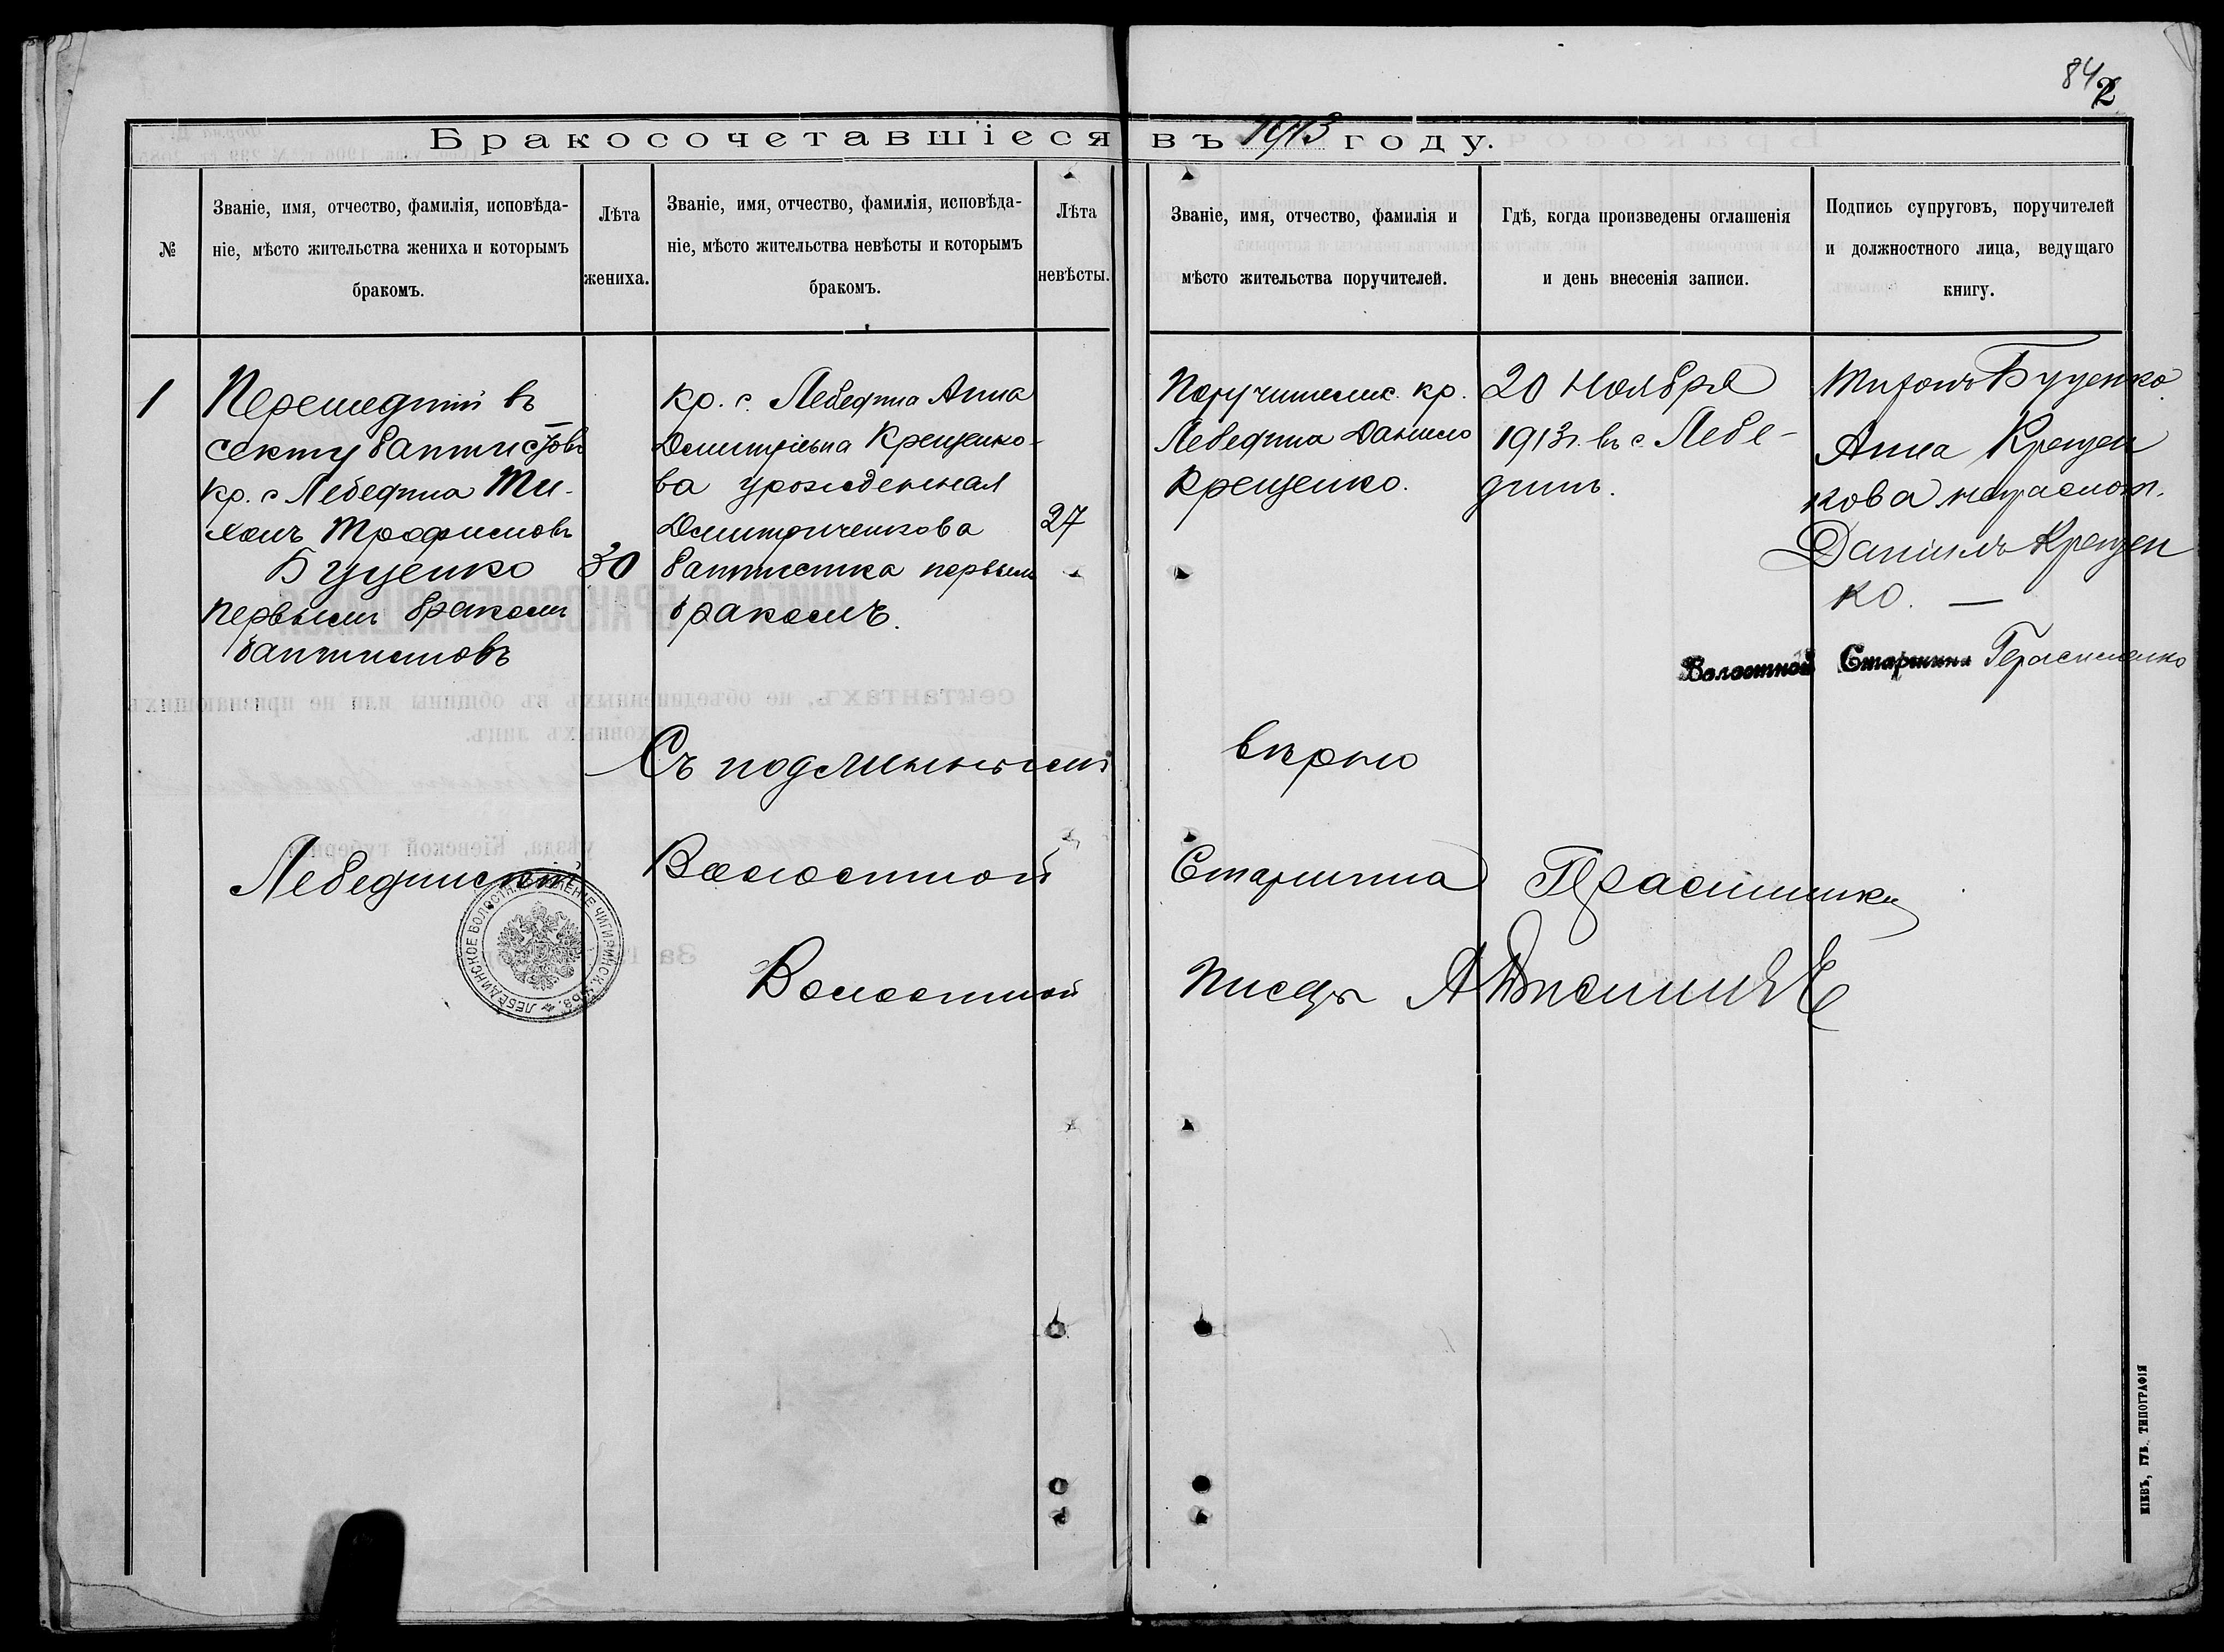 84
2
Бракосочетавшіеся въ 1913 году.
№
Званіе, имя, отчество, фамилія, исповѣда-
ніе, мѣсто жительства жениха и которымъ
бракомъ.
Лѣта
жениха.
Званіе, имя, отчество, фамилія, исповѣда-
ніе, мѣсто жительства невѣсты и которымъ
бракомъ.
Лѣта
невѣсты.
Званіе, имя, отчество, фамилія и
мѣсто жительства поручителей.
Гдѣ, когда произведены оглашенія
и день внесенія записи.
Подпись супруговъ, поручителей
и должностного лица, ведущаго
книгу.
1
Перешедшій въ
секту баптистовъ
кр. с Лебедина Ти-
хонъ Трофимовъ
Буценко
первымъ бракомъ
баптистовъ
30
кр. с. Лебедина Анна
Дмитріевна Крещенко-
ва урожденная
Дмитренкова
баптистка первымъ
бракомъ.
27
Поручители кр.
Лебедина Данило
Крещенко.
20 Ноября
1913 г. въ с. Лебе-
динъ.
Тихонъ Буценко
Анна Крещен
кова неграмот.
Даніилъ Крещен
ко. —
Волостной Старшина Герасименко
Съ подлиннымъ вѣрно
Лебединскій Волостной Старшина Герасименко
Волостной Писарь
ЛЕБЕДИНСКОЕ ВОЛОСТН. ПРАВЛЕНІЕ ЧИГИРИНСК. УѢЗ.
КІЕВЪ, ГУБ. ТИПОГРАФІЯ